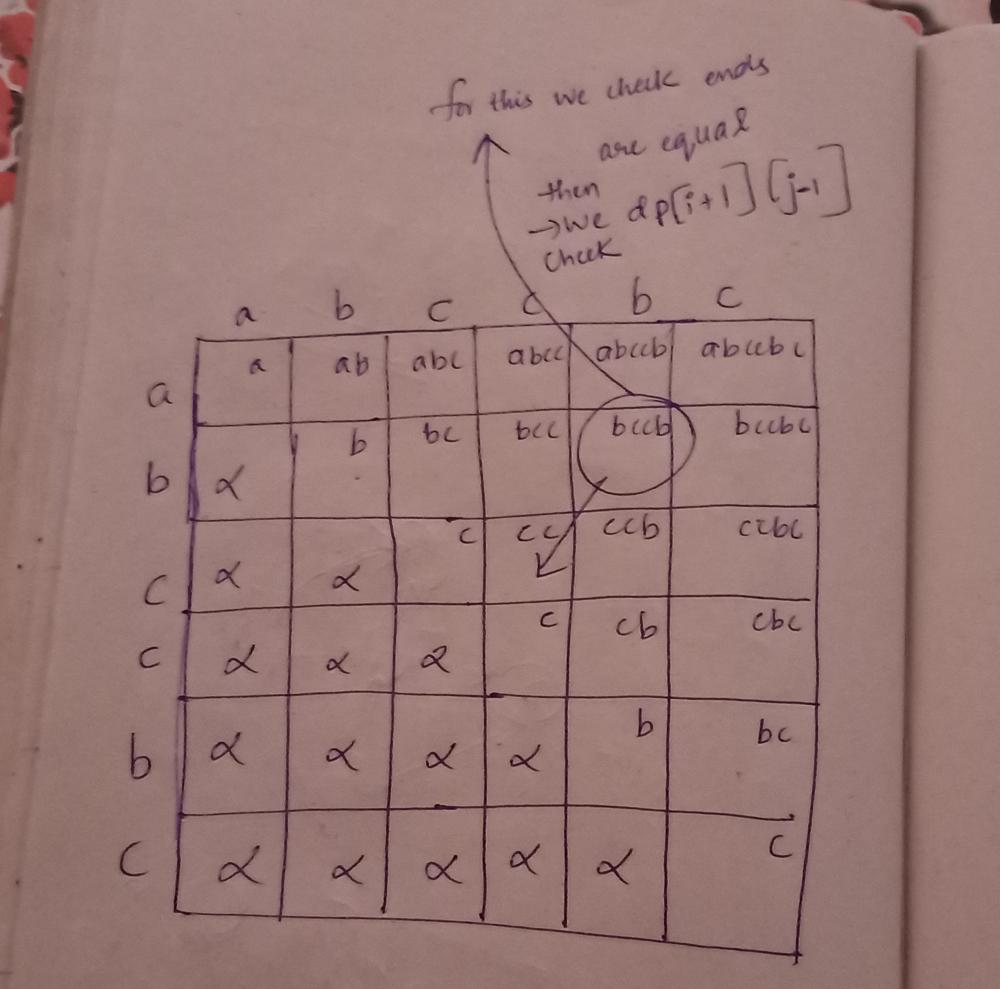 for this we check ends
are equal
then
→we dp[i+1][j-1]
check
a b c c b c
a a ab abc abcc abccb abccbc
b α b bc bcc bccb bccbc
c α α c cc ccb ccbc
c α α α c cb cbc
b α α α α b bc
c α α α α α c